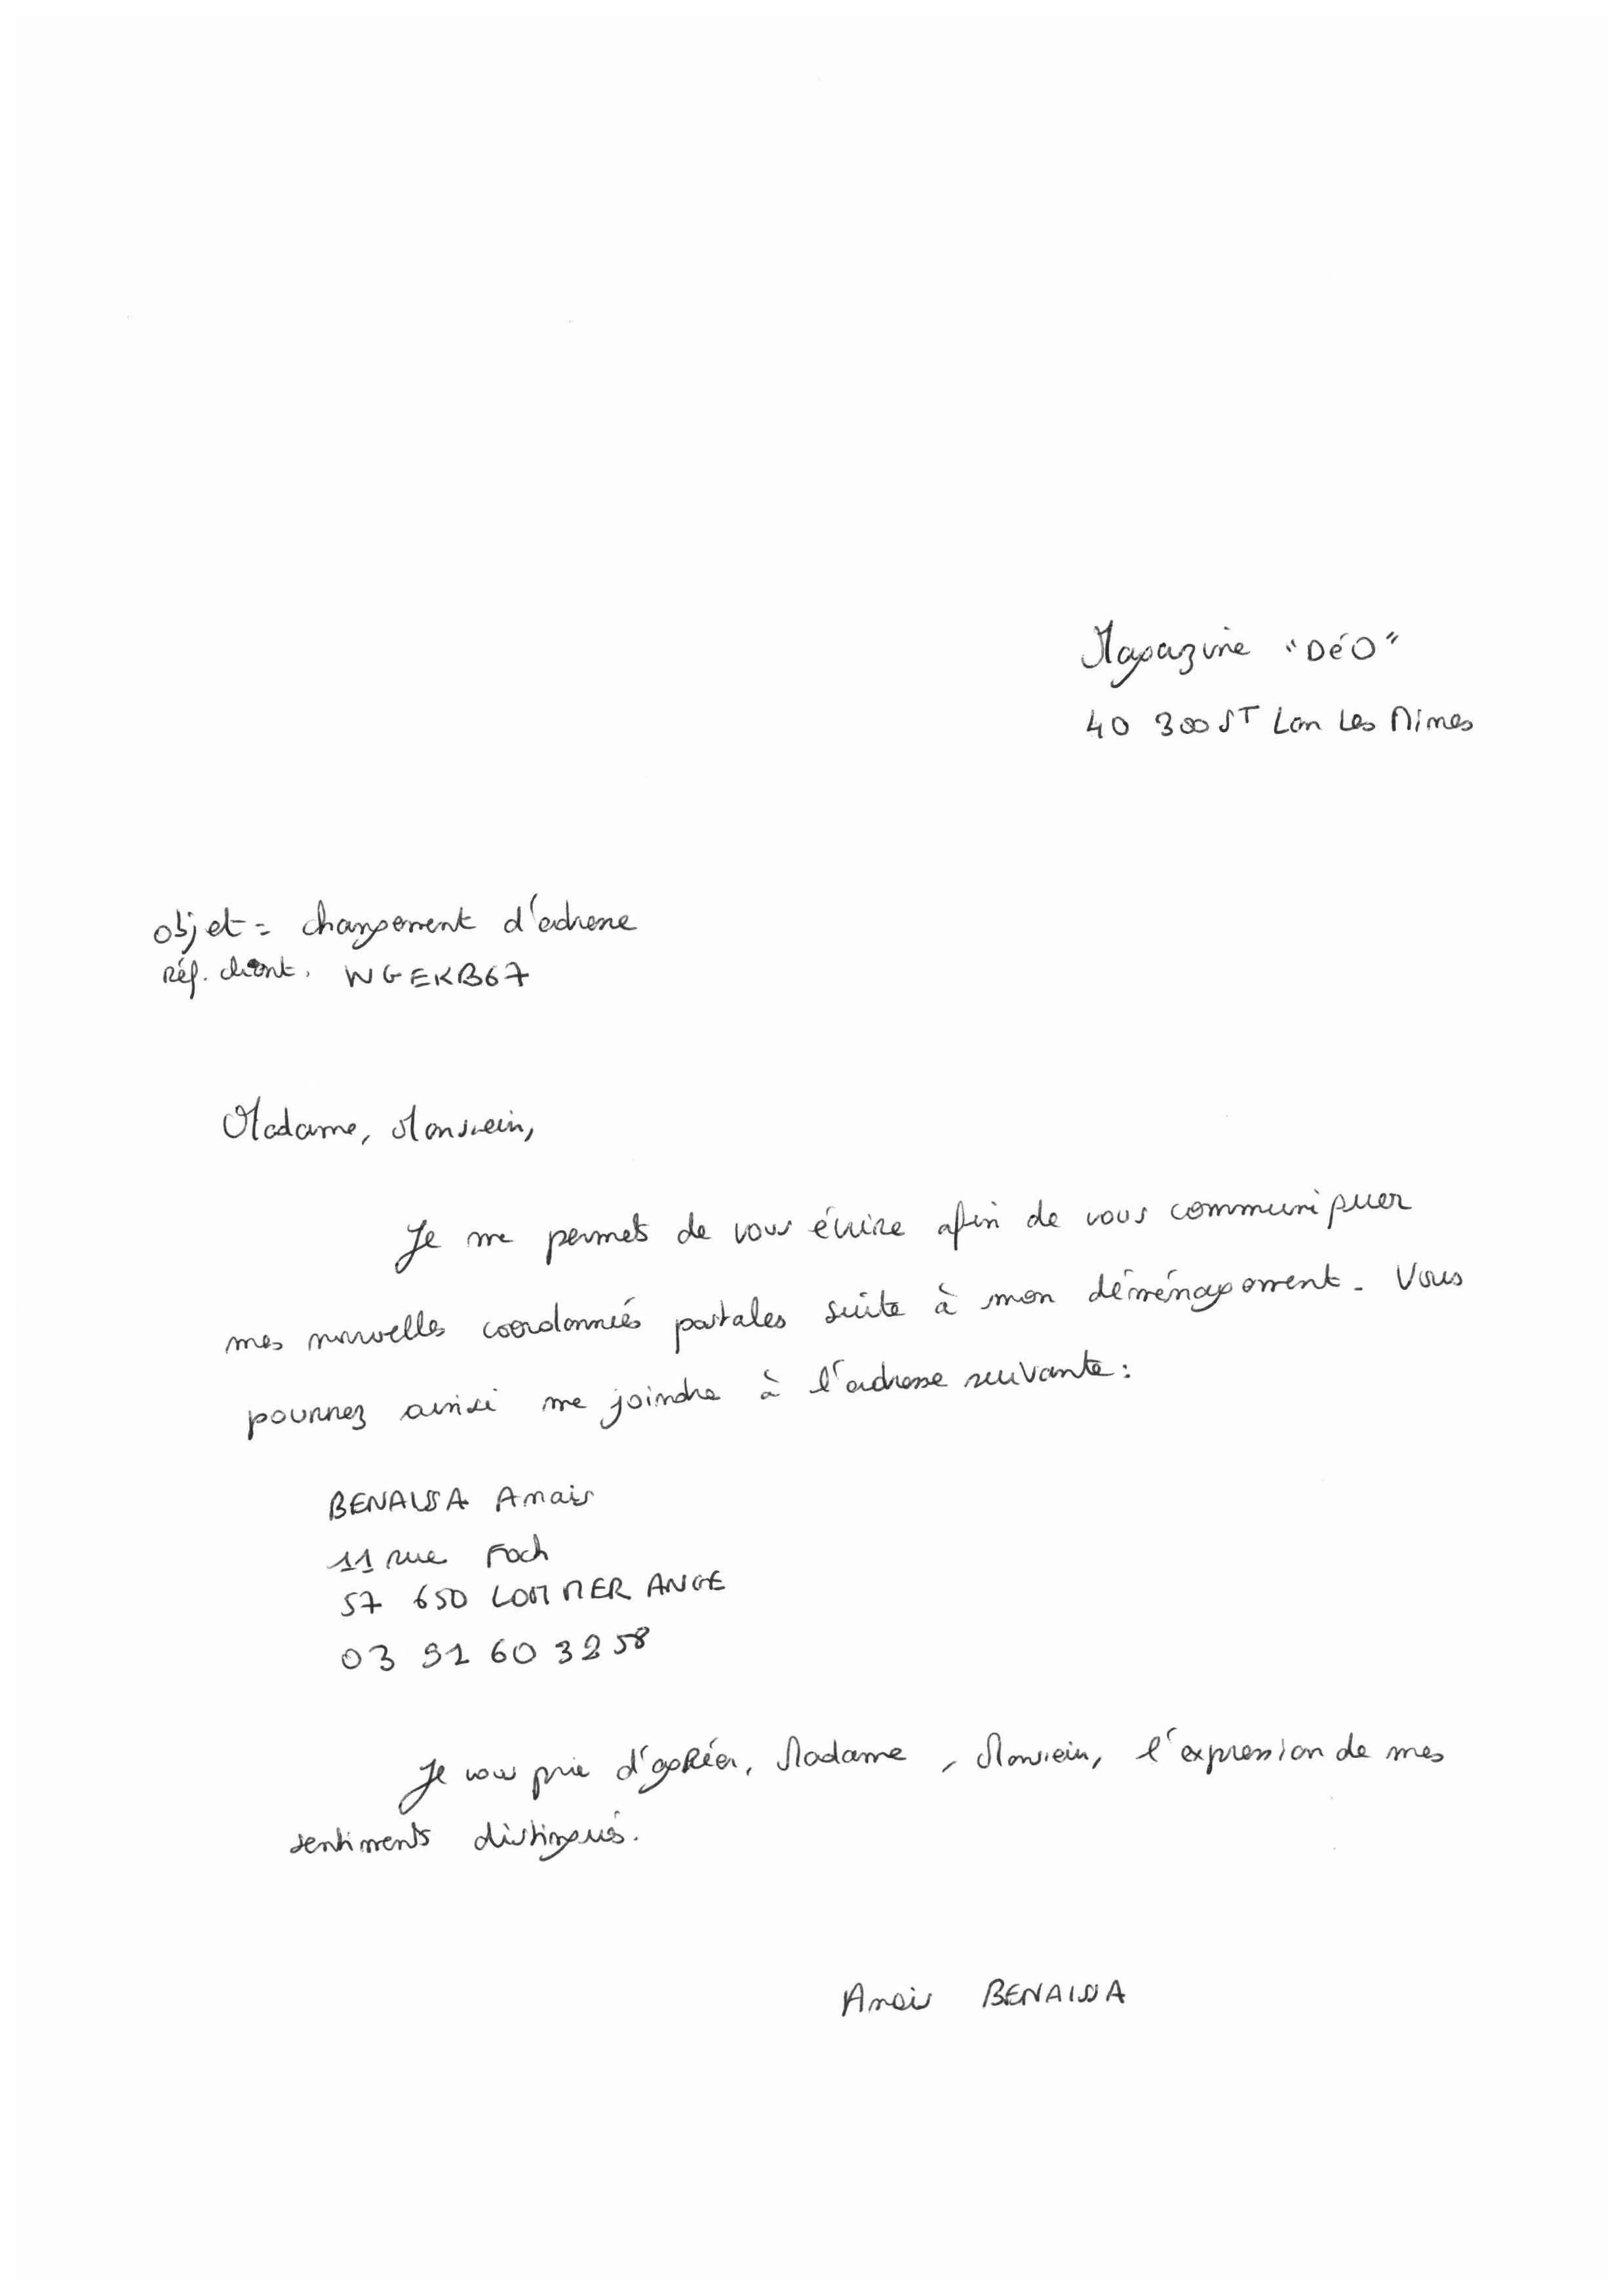 Magazine "DéO"
40 300 ST Lon Les Mines
objet = changement d'adresse
Réf. client. WGEKB67
Madame, Monsieur,
Je me permets de vous écrire afin de vous communiquer
mes nouvelles coordonnées postales suite à mon déménagement. Vous
pourrez ainsi me joindre à l'adresse suivante :
BENAISSA Anais
11 rue Foch
57 650 LOMMERANGE
03 91 60 32 58
Je vous prie d'agréer, Madame, Monsieur, l'expression de mes
sentiments distingués.
Anais BENAISSA